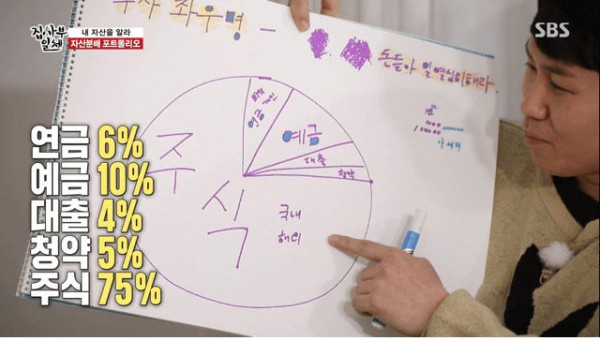 집사부일체
내 자산을 알라
자산분배 포트폴리오
SBS
투자 좌우명 -
돈들아 일 열심히해라.
연금
예금
대출
청약
주식
국내
해외
연금 6%
예금 10%
대출 4%
청약 5%
주식 75%